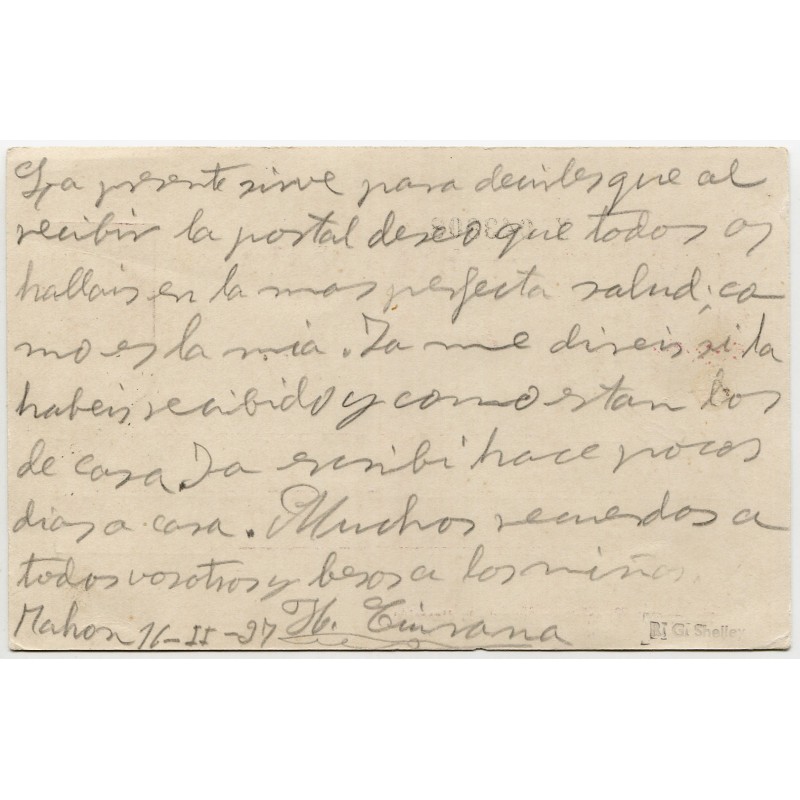 La presente sirve para decirles que al
recibir la postal deseo que todos os
hallais en la mas perfecta salud co
mo es la mia. Ja me direis si la
habeis recibido y como estan los
de casa. Ja escribi hace pocos
dias a casa. Muchos recuerdos a
todos vosotros y besos a los niños.
Mahon 16-II-37 H.
Gi Shelley